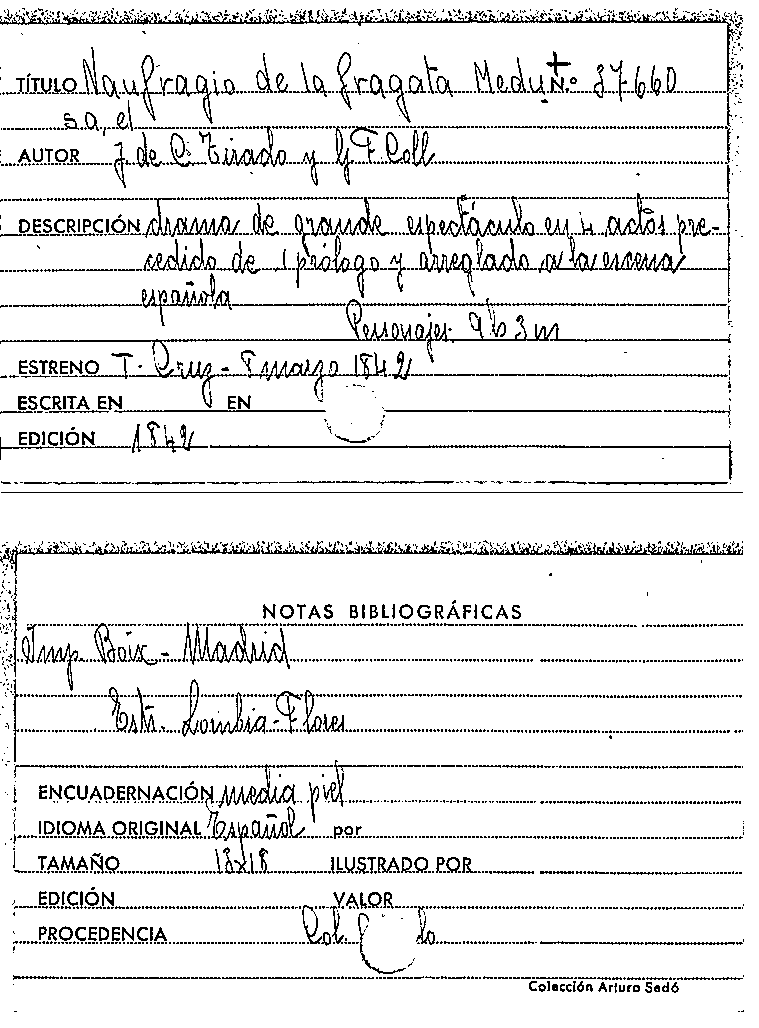 TÍTULO Naufragio de la fragata Medu N.º 37660
sa, el
AUTOR J. de C. Tirado y G. F. Coll
DESCRIPCIÓN drama de grande espectáculo en 4 actos pre-
cedido de 1 prólogo y arreglado a la escena
española
Personajes. 9h 3m
ESTRENO T. Cruz - 8 marzo 1842
ESCRITA EN EN
EDICIÓN 1842
NOTAS BIBLIOGRÁFICAS
Imp. Boix - Madrid
Estr. Lombia-Flores
ENCUADERNACIÓN media piel
IDIOMA ORIGINAL Español por
TAMAÑO 13x18 ILUSTRADO POR
EDICIÓN VALOR
PROCEDENCIA Col.
Colección Arturo Sedó